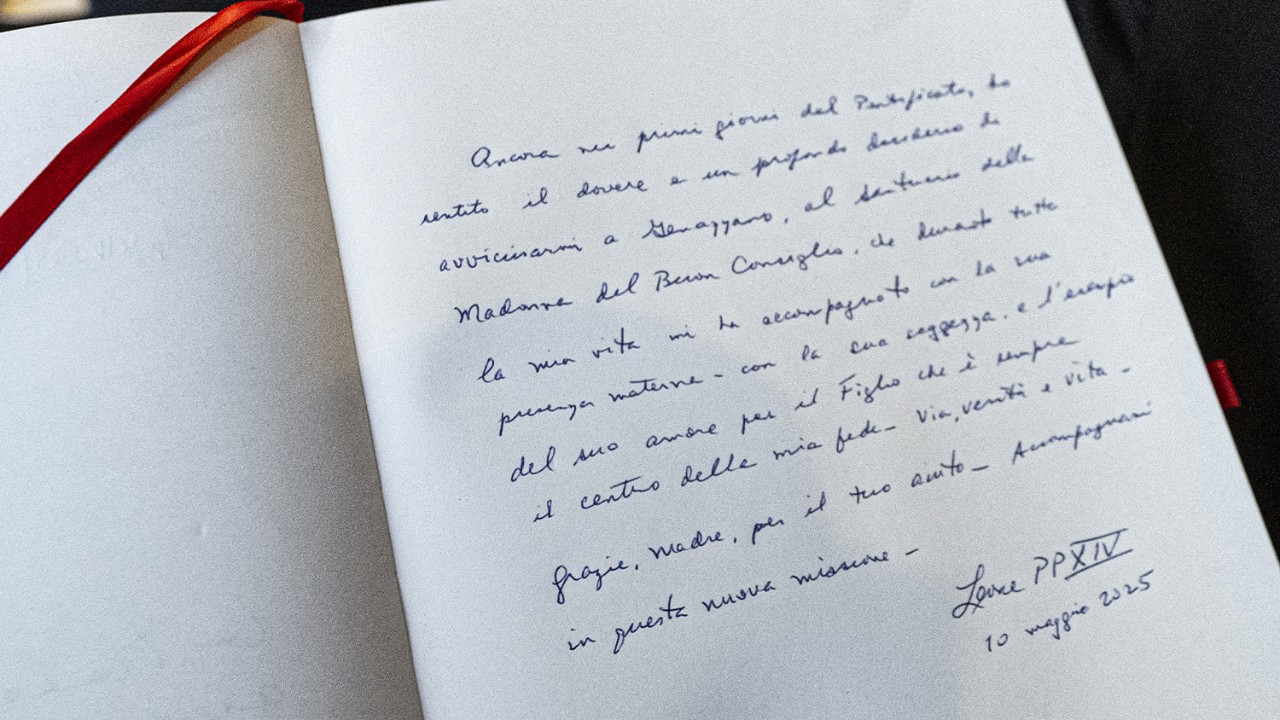 Ancora nei primi giorni del Pontificato, ho
sentito il dovere e un profondo desiderio di
avvicinarmi a Genazzano, al santuario della
Madonna del Buon Consiglio, che durante tutta
la mia vita mi ha accompagnato con la sua
presenza materna - con la sua saggezza, e l'esempio
del suo amore per il Figlio che è sempre
il centro della mia fede - Via, verità e vita -
Grazie, Madre, per il tuo aiuto - Accompagnami
in questa nuova missione -
Leone PP XIV
10 maggio 2025